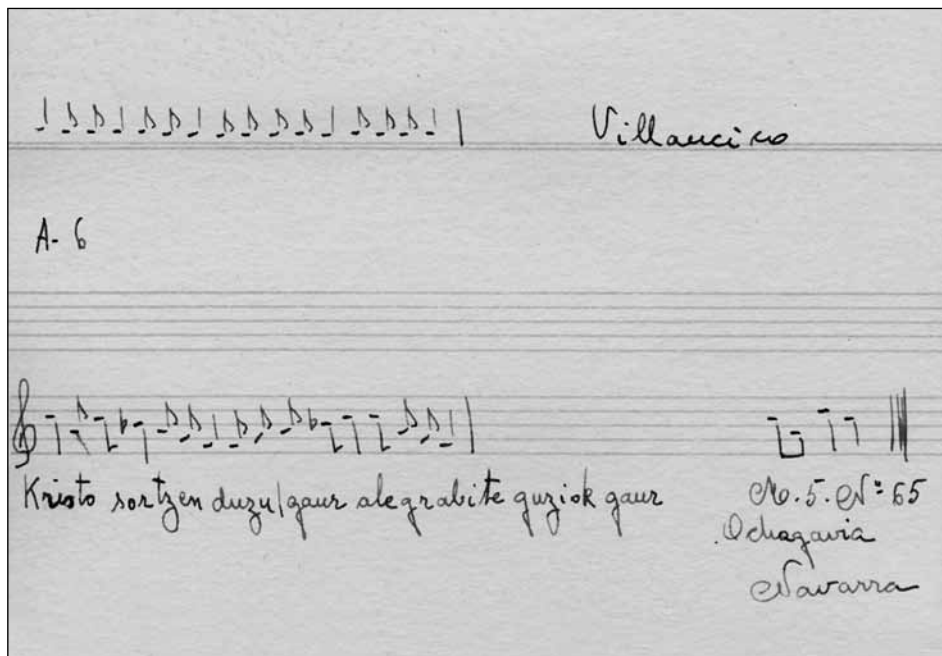 Villancico
A- 6
Kristo sortzen duzu/gaur alegrabite guziok gaur
M. 5. Nº 65
Ochagavia
Navarra